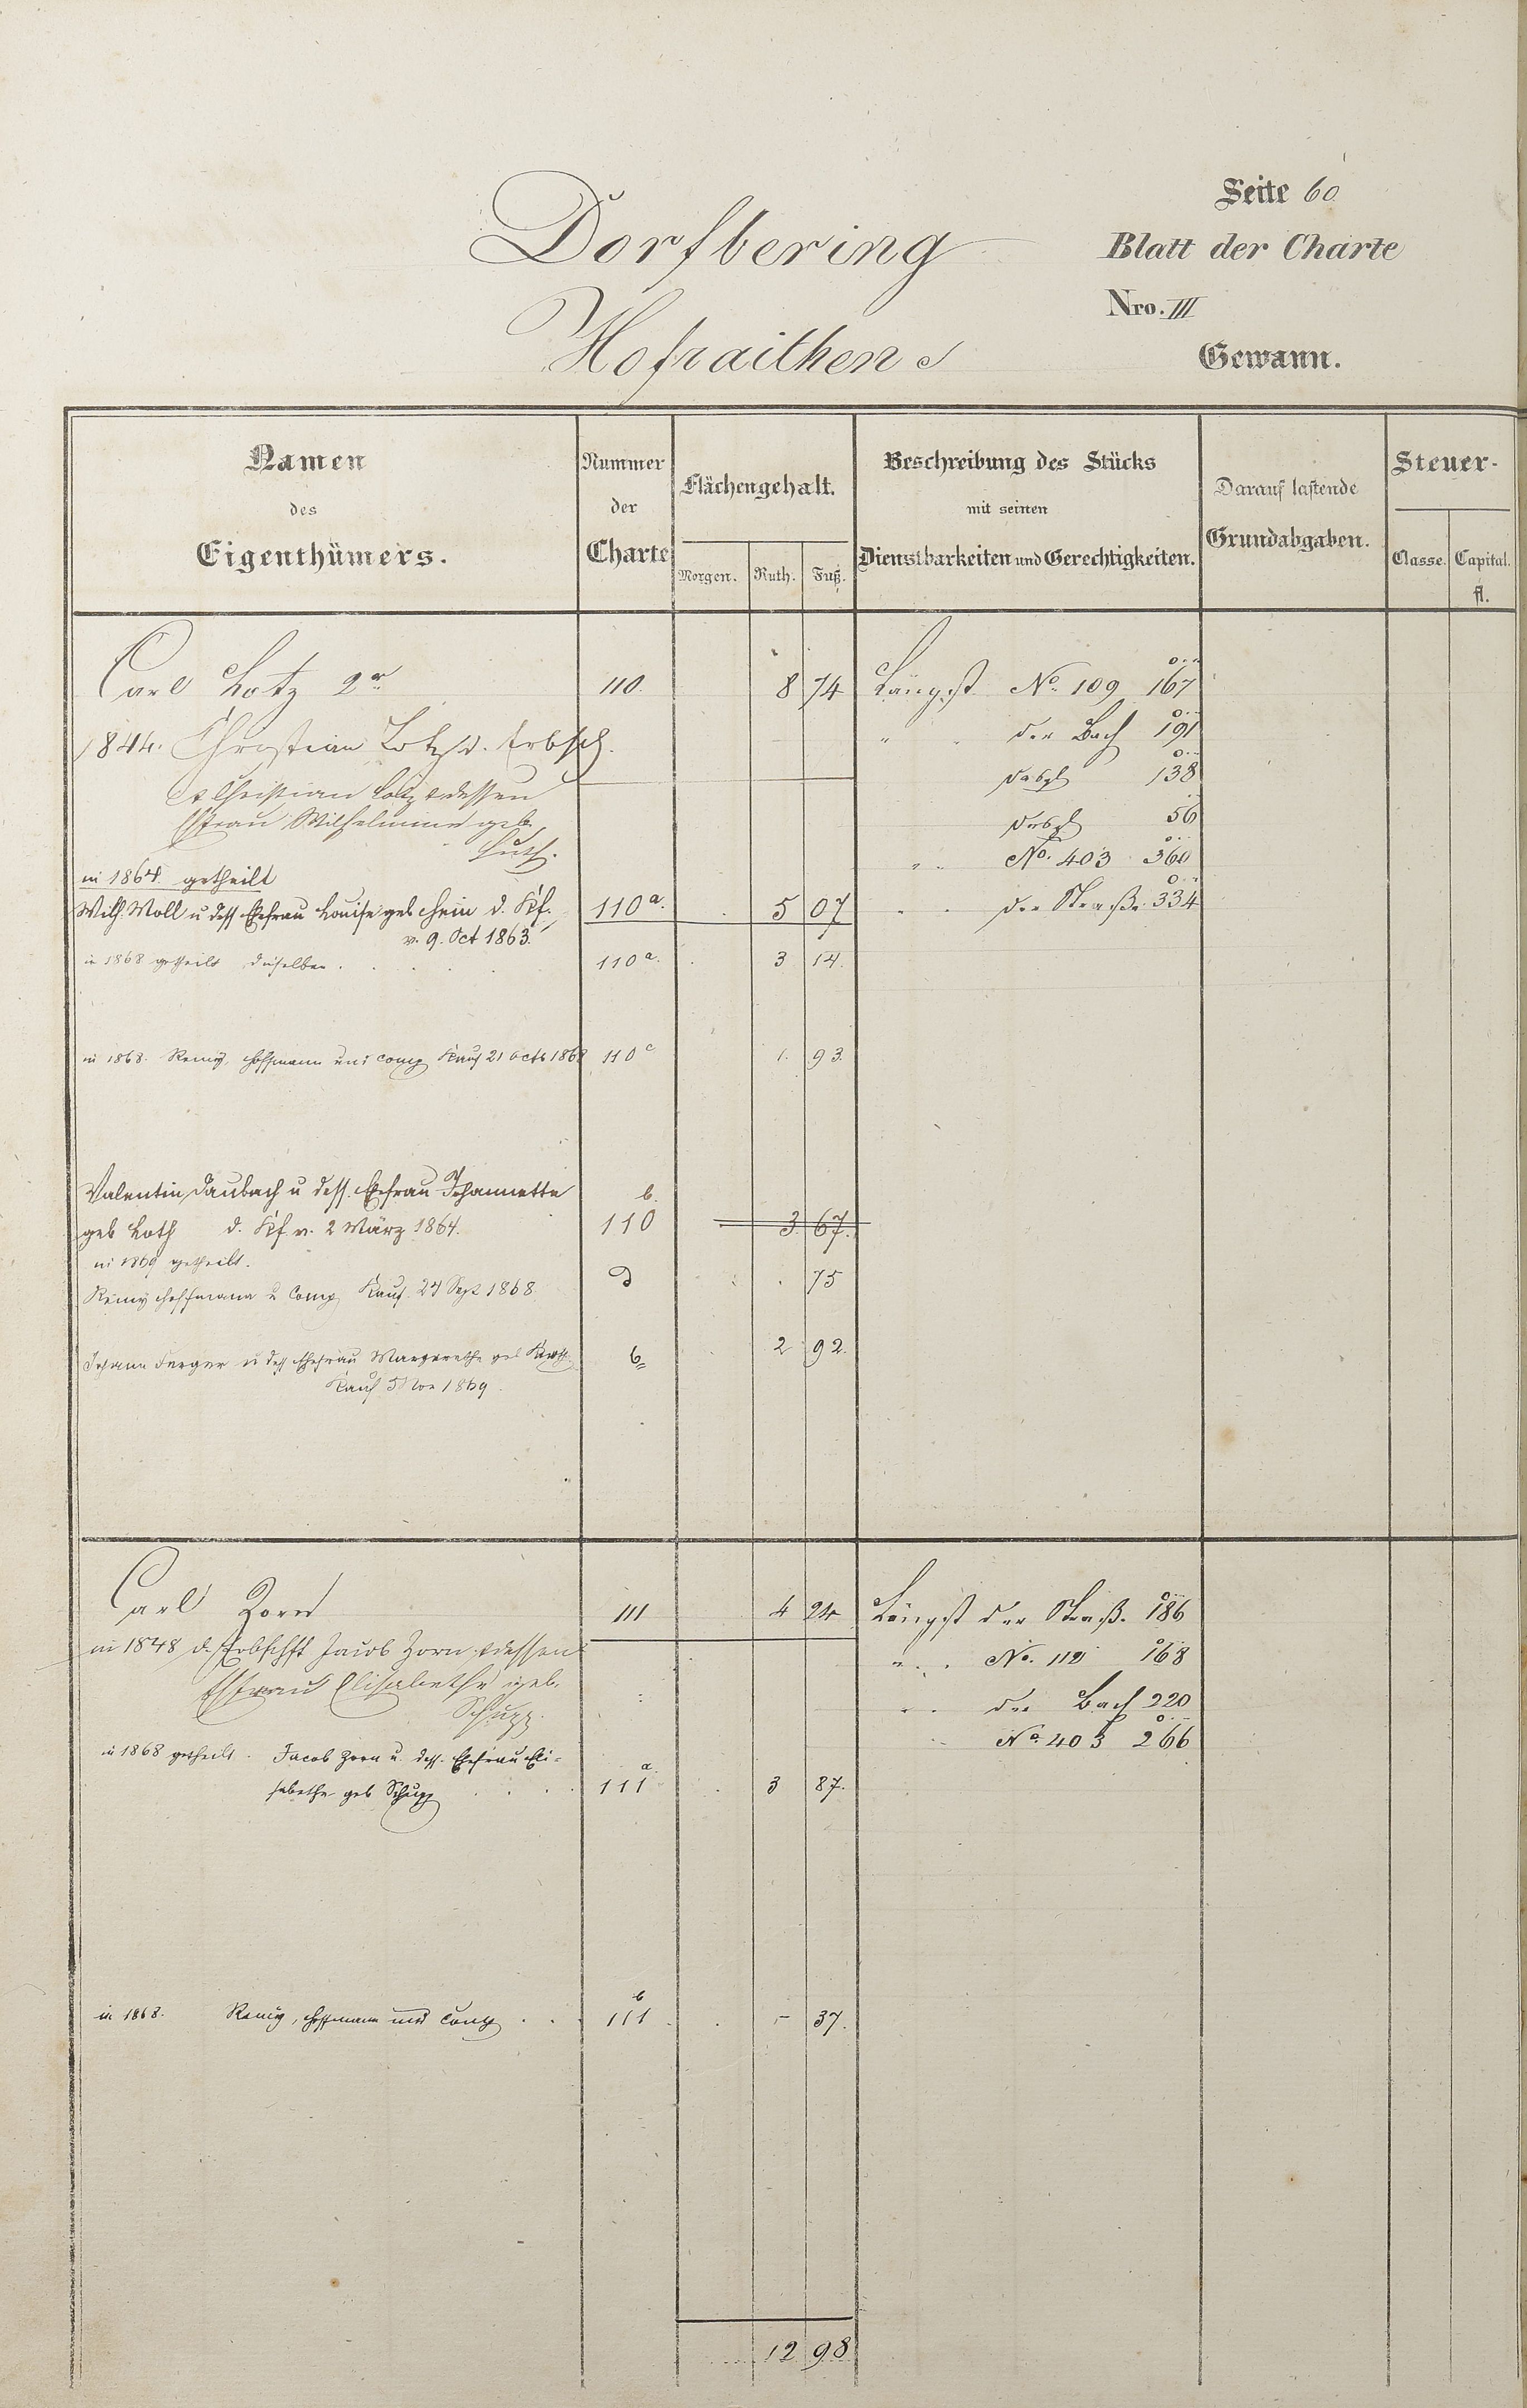 Seite 60
Dorfbering
Blatt der Charte
Nro. III
Hofraithen
Gewann.
Namen
des
Eigenthümers.
Nummer
der
Charte
Flächengehalt.
Morgen. Ruth. Fuß.
Beschreibung des Stücks
mit seinen
Dienstbarkeiten und Gerechtigkeiten.
Darauf lastende
Grundabgaben.
Steuer-
Classe. Capital.
fl.
Carl Lotz 2r 110. 8 74 Längst No. 109 167
1844. Christian Lotz d. Erbsch. " " der Bach 191
desgl 138
Christian Lotz & dessen
Ehfrau Wilhelmine geb. desgl 56
Huth. " " No. 403 360
in 1864 getheilt
Wilh. Moll u dess Ehefrau Louise geb Hein d. Kf. 110a. 5 07 " " der Straße 334
v. 9. Oct 1863.
in 1868 getheilt dieselben. 110a. 3 14.
in 1868. Remy, Hoffmann und Comp Kauf 21 Octb 1868 110c 1. 93.
Valentin Daubach u dess. Ehefrau Johannette b.
geb Loth d. Kf. v. 2 März 1864. 110 3. 67.
in 1869 getheilt.
Remy Hoffmann u Comp Kauf 27 Sept 1868 d 75
Johann Ferger u dess Ehefrau Margrethe geb b 2 92.
Kauf 5 Nov 1869.
Carl Zorn 111 4 24 Längst der Straß. 186
in 1848 d. Erbschft Jacob Zorn & dessen " " No. 112 168
Ehfrau Elisabethe geb.
Schupp. " " der Bach 220
No. 403 266
in 1868 getheilt. Jacob Zorn u. dess. Ehefrau Eli-
sabethe geb Schupp 111a 3 87.
in 1868. Remy, Hoffmann und Comp 111b - 37.
12 98